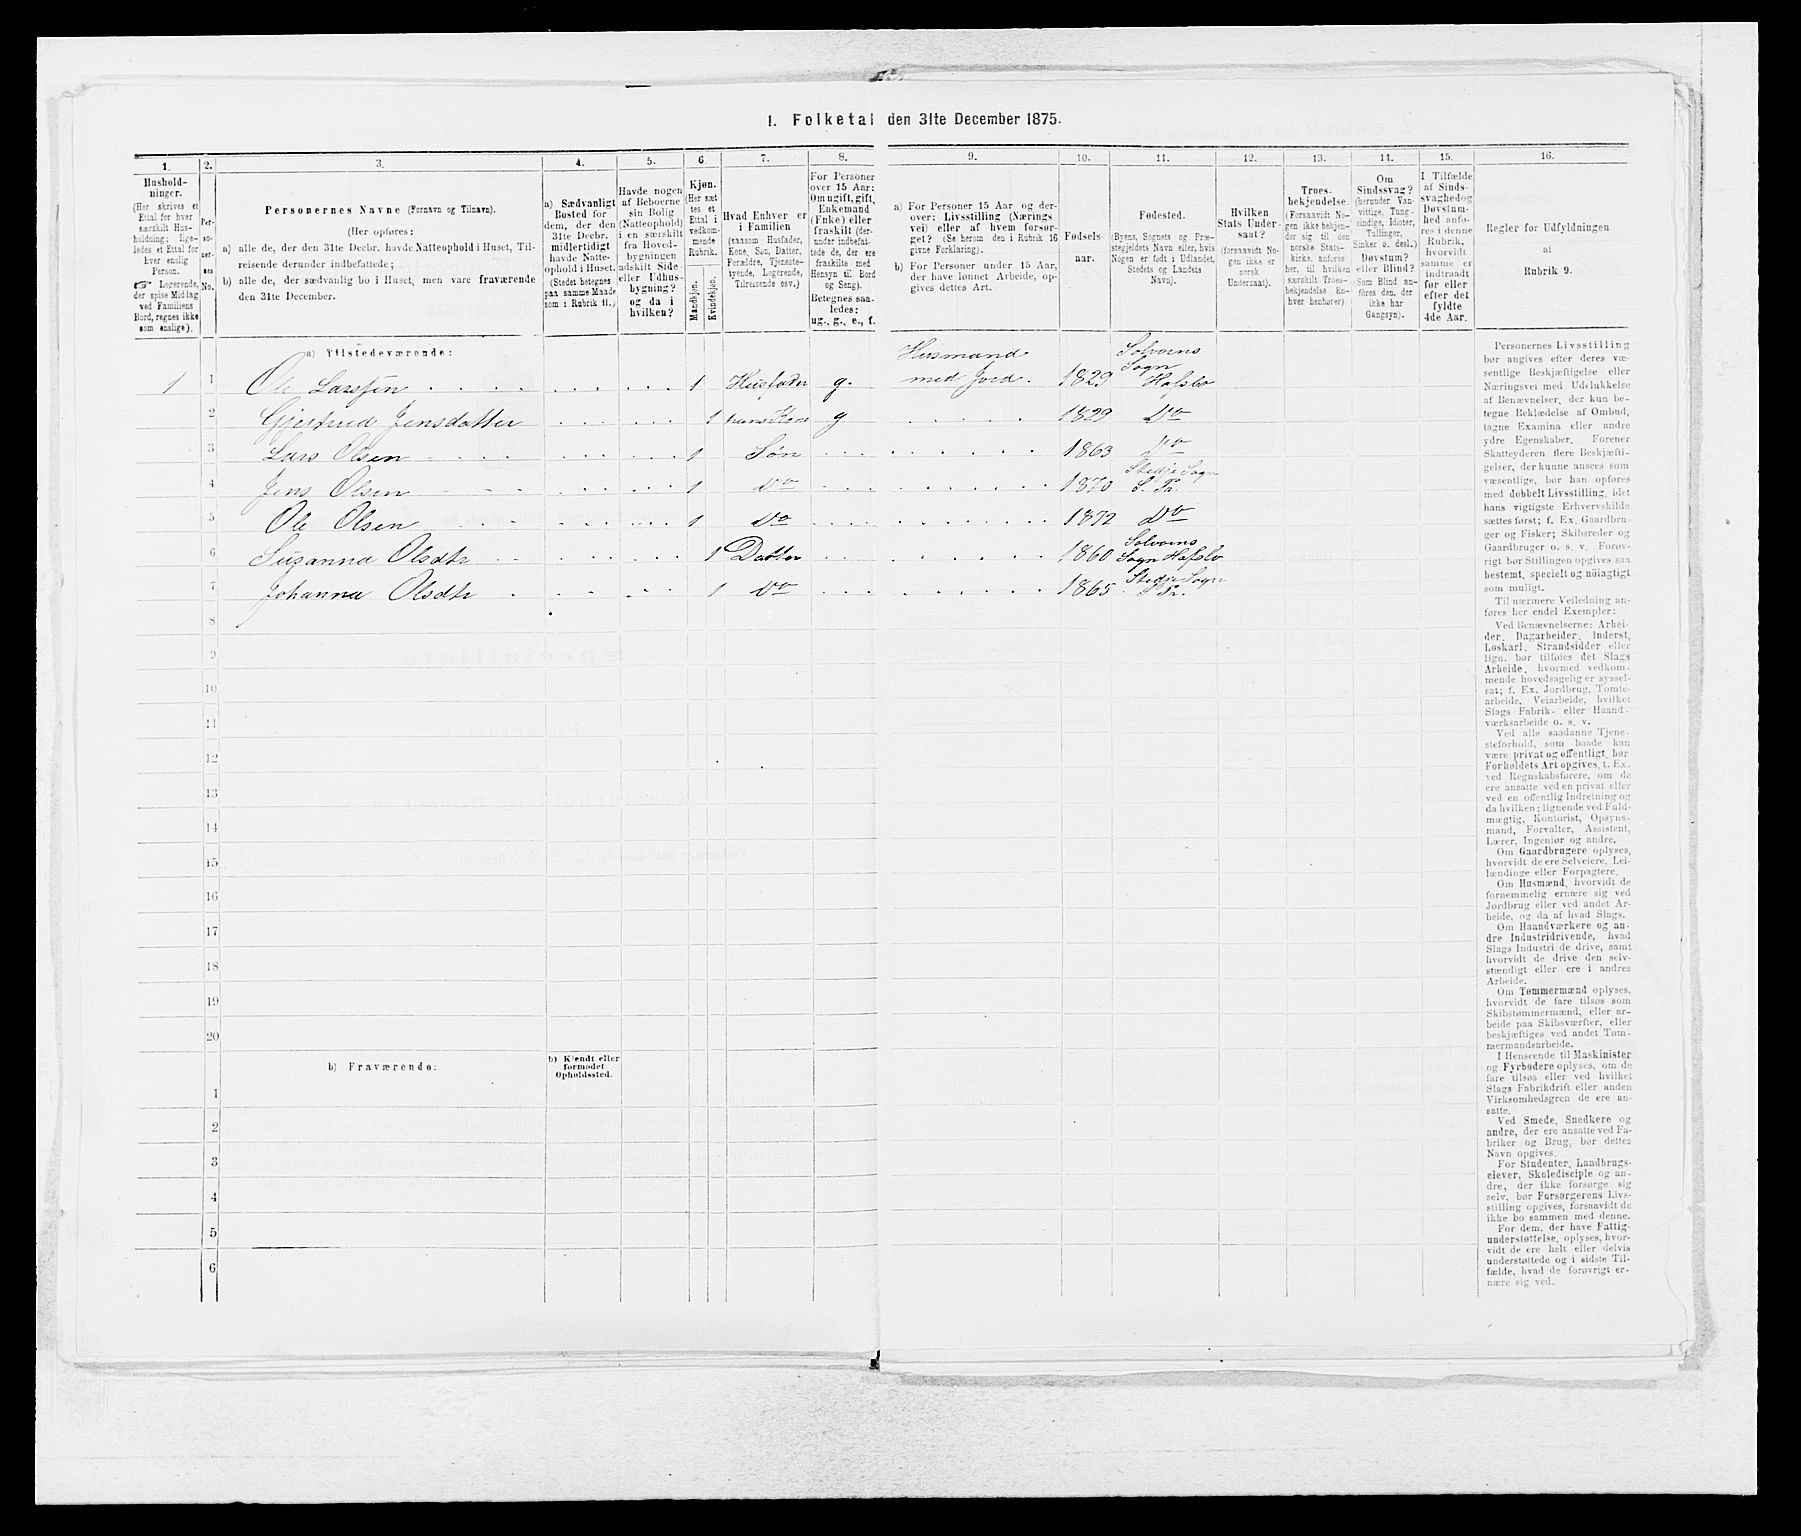 1. Folketal den 31te December 1875.
1. 2. 3. 4. 5. 6 7. 8. 9. 10. 11. 12. 13. 14. 15. 16.
Hushold-
ninger.
(Her skrives et
Ettal for hver
særskilt Hus-
holdning; lige-
ledes et Ettal for
hver enslig
Person.
☞ Logerende,
der spise Middag
ved Familiens
Bord, regnes ikke
som enslige).
Per-
so-
ner-
nes
No.
Personernes Navne (Fornavn og Tilnavn).
(Her opføres:
a) alle de, der den 31te Decbr. havde Natteophold i Huset, Til-
reisende derunder indbefattede;
b) alle de, der sædvanlig bo i Huset, men vare fraværende
den 31te December.
a) Sædvanligt
Bosted for
dem, der den
31te Decbr.
midlertidigt
havde Natte-
ophold i Huset.
(Stedet betegnes
paa samme Maade
som i Rubrik 11.)
Havde nogen
af Beboerne
sin Bolig
(Natteophold)
i en særskilt
fra Hoved-
bygningen
adskilt Side-
eller Udhus-
bygning?
og da i
hvilken?
Kjøn.
(Her sæt
tes et
Ettal i
vedkom-
mende
Rubrik.
Mandkjøn.
Kvindekjøn.
Hvad Enhver er
i Familien
(saasom Husfader,
Kone, Søn, Datter,
Forældre, Tjeneste-
tyende, Logerende,
Tilreisende osv.)
For Personer
over 15 Aar:
Om ugift, gift,
Enkemand
(Enke) eller
fraskilt (der-
under indbefat-
tede de, der ere
fraskilte med
Hensyn til Bord
og Seng).
Betegnes saa-
ledes:
ug., g., e., f.
a) For Personer 15 Aar og der-
over: Livsstilling (Nærings
vei) eller af hvem forsør-
get? (Se herom den i Rubrik 16
givne Forklaring).
b) For Personer under 15 Aar,
der have lønnet Arbeide, op-
gives dettes Art.
Fødsels-
aar.
Fødested.
(Byens, Sognets og Præ-
stegjeldets Navn eller, hvis
Nogen er født i Udlandet,
Stedets og Landets
Navn).
Hvilken
Stats Under-
saat?
(forsaavidt No-
gen ikke er
norsk
Undersaat).
Troes-
bekjendelse.
(Forsaavidt No-
gen ikke bekjen-
der sig til den
norske Stats-
kirke, anføres
her, til hvilken
særskilt Troes-
bekjendelse En-
hver henhører).
Om
Sindssvag?
(herunder Van-
vittige, Tung-
sindige, Idioter,
Tullinger,
Sinker o. desl.)
Døvstum?
eller Blind?
Som Blind an-
føres den, der
ikke har
Gangsyn).
I Tilfælde
af Sinds-
svaghed og
Døvstum-
hed anfø-
res i denne
Rubrik,
hvorvidt
samme er
indtraadt
før eller
efter det
fyldte
4de Aar.
Regler for Udfyldningen
af
Rubrik 9.
a) Tilstedeværende:
1 1 Ole Larssen 1 Husfader g. Husmand med Jord. 1829 Solvorns Sogn Hafslo
2 Gjertrud Jensdatter 1 hans Kone g 1829 Do
3 Lars Olsen 1 Søn 1863 Do
4 Jens Olsen 1 Do 1870 Stedje Sogn S. Pr.
5 Ole Olsen 1 Do 1872 Do
6 Susanna Olsdtr 1 Datter 1860 Solvorns Sogn Hafslo
7 Johanna Olsdtr 1 Do 1865 Stedje Sogn S Pr.
8
9
10
11
12
13
14
15
16
17
18
19
20
b) Fraværende:
b) Kjendt eller
formodet
Opholdssted.
1
2
3
4
5
6
Personernes Livsstilling
bør angives efter deres væ-
sentlige Beskjæftigelse eller
Næringsvei med Udelukkelse
af Benævnelser, der kun be-
tegne Beklædelse af Ombud,
tagne Examina eller andre
ydre Egenskaber. Forener
Skatteyderen flere Beskjæfti-
gelser, der kunne ansees som
væsentlige, bør han opføres
med dobbelt Livsstilling, idet
hans vigtigste Erhvervskilde
sættes først; f. Ex. Gaardbru-
ger og Fisker; Skibsreder og
Gaardbruger o. s. v. Forøv-
rigt bør Stillingen opgives saa
bestemt, specielt og nøiagtigt
som muligt.
Til nærmere Veiledning an-
føres her endel Exempler:
Ved Benævnelserne: Arbei-
der, Dagarbeider, Inderst,
Løskarl, Strandsidder eller
lign. bør tilføies det Slags
Arbeide, hvormed vedkom-
mende hovedsagelig er syssel-
sat; f. Ex. Jordbrug, Tomte-
arbeide, Veiarbeide, hvilket
Slags Fabrik- eller Haand-
værksarbeide o. s. v.
Ved alle saadanne Tjene-
steforhold, som baade kan
være privat og offentligt, bør
Forholdets Art opgives, t. Ex.
ved Regnskabsførere, om de
ere ansatte ved en privat eller
ved en offentlig Indretning og
da hvilken; lignende ved Fuld-
mægtig, Kontorist, Opsyns-
mand, Forvalter, Assistent,
Lærer, Ingeniør og andre.
Om Gaardbrugere oplyses,
hvorvidt de ere Selveiere, Lei-
lændinge eller Forpagtere.
Om Husmænd, hvorvidt de
fornemmelig ernære sig ved
Jordbrug eller ved andet Ar-
beide, og da af hvad Slags.
Om Haandværkere og an-
dre Industridrivende, hvad
Slags Industri de drive, samt
hvorvidt de drive den selv-
stændigt eller ere i andres
Arbeide.
Om Tømmermænd oplyses,
hvorvidt de fare tilsøs som
Skibstømmermænd, eller ar-
beide paa Skibsværfter, eller
beskjæftiges ved andet Tøm-
mermandsarbeide.
I Henseende til Maskinister
og Fyrbødere oplyses, om de
fare tilsøs eller ved hvilket
Slags Fabrikdrift eller anden
Virksomhedsgren de ere an-
satte.
Ved Smede, Snedkere og
andre, der ere ansatte ved Fa-
briker og Brug, bør dettes
Navn opgives.
For Studenter, Landbrugs-
elever, Skoledisciple og an-
dre, der ikke forsørge sig
selv, bør Forsørgerens Livs-
stilling opgives, forsaavidt de
ikke bo sammen med denne.
For dem, der have Fattig-
understøttelse, oplyses, hvor-
vidt de ere helt eller delvis
understøttede og i sidste Til-
fælde, hvad de forøvrigt er-
nære sig ved.